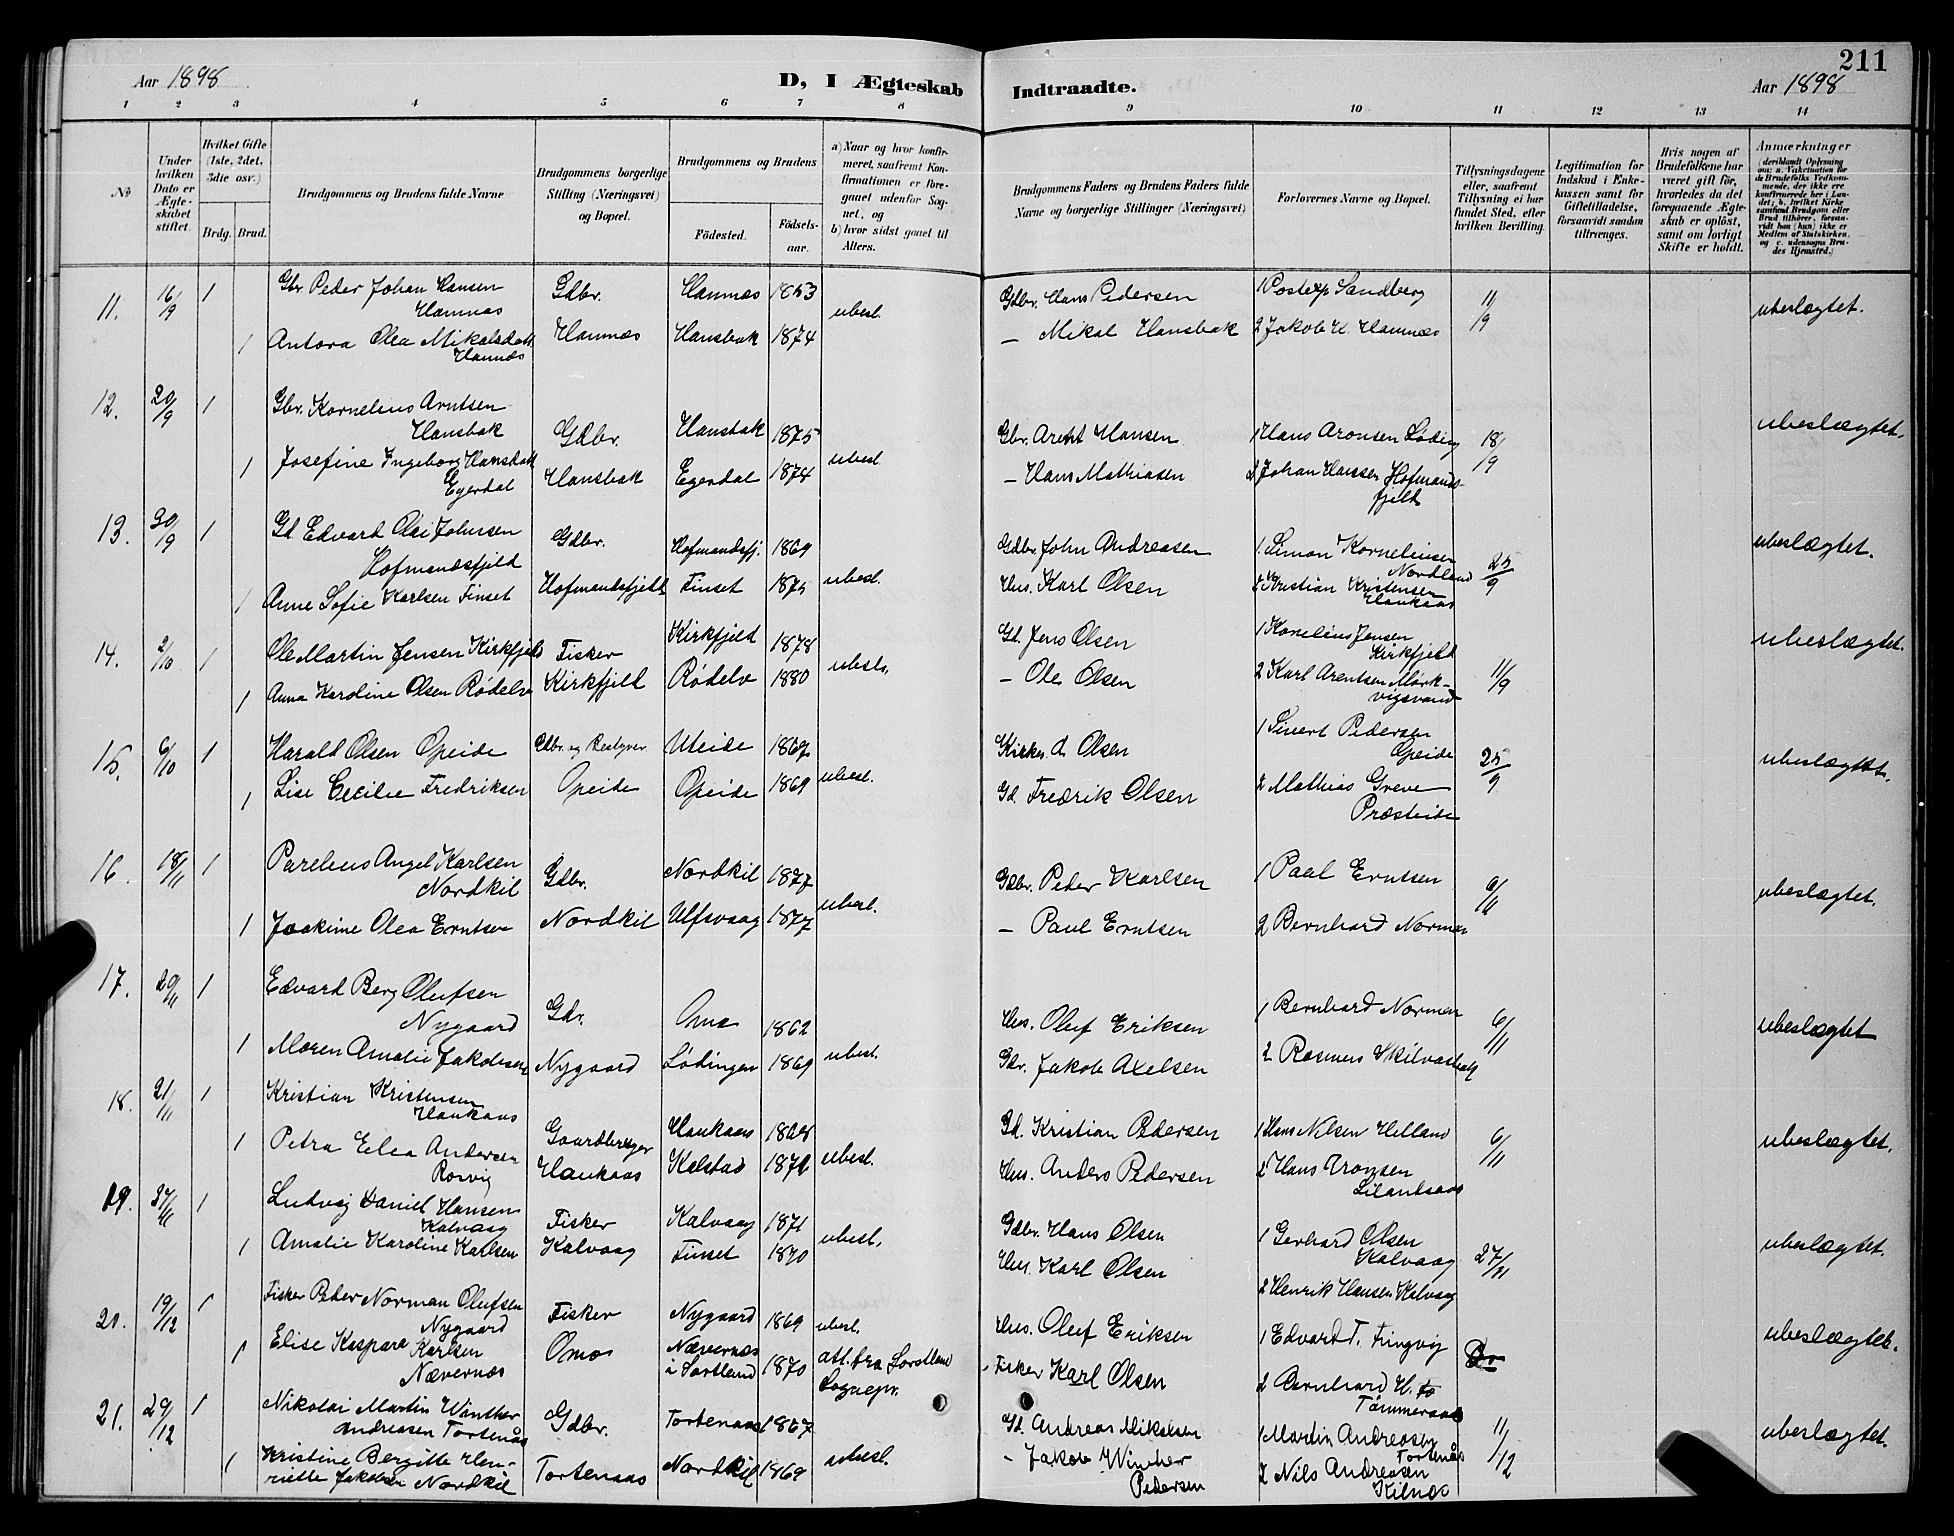 211
Aar 1898
D, I Ægteskab Indtraadte.
Aar 1898
1 2 3 4 5 6 7 8 9 10 11 12 13 14
No
Under hvilken Dato er Ægteskabet stiftet.
Hvilket Gifte (1ste, 2det, 3die osv.)
Brdg. Brud.
Brudgommens og Brudens fulde Navne
Brudgommens borgerlige Stilling (Næringsvei) og Bopæl.
Brudgommens og Brudens
Fødested.
Fødselsaar.
a) Naar og hvor konfirmeret, saafremt Konfirmationen er foregaaet udenfor Sognet, og
b) hvor sidst gaaet til Alters.
Brudgommens Faders og Brudens Faders fulde Navne og borgerlige Stillinger (Næringsvei)
Forlovernes Navne og Bopæl.
Tillysningsdagene eller, saafremt Tillysning ei har fundet Sted, efter hvilken Bevilling.
Legitimation for Indskud i Enkekassen samt for Giftetilladelse, forsaavidt saadan tiltrænges.
Hvis nogen af Brudefolkene har været gift før, hvorledes da det foregaaende Ægteskab er opløst, samt om lovligt Skifte er holdt.
Anmærkninger (deriblandt Oplysning om: a. Vaksination for de Brudefolks Vedkommende, der ikke ere konfirmerede her i Landet; b. hvilket Kirkesamfund Brudgom eller Brud tilhører, forsaavidt han (hun) ikke er Medlem af Statskirken, og c. udensogns Brudes Hjemsted.)
11. 16/9 1 Gbr Peder Johan Hansen Hamnæs Gdbr. Hamnæs 1853 ubesl. Gdbr. Hans Pedersen 1 Postexp Sandberg 11/9 ubeslægtet.
1 Antora Olea Mikalsdatt Hamnæs Hamnæs Hansbak 1874 — Mikal Hansbak 2 Jakob H. Hamnæs
12. 20/9 1 Gbr. Kornelius Arntsen Hansbak Gdbr. Hansbak 1875 ubesl. Gbr. Arent Hansen 1 Hans Aronsen Løding 18/9 ubeslægtet.
1 Josefine Ingeborg Hansdatt Egerdal Hansbak Egerdal 1874 — Hans Mathiasen 2 Johan Hansen Hofmandsfjeld
13. 30/9 1 Gd. Edvard Olai Johnsen Hofmandsfjeld Gdbr. Hofmandsfj. 1869 ubesl. Gdbr. John Andreasen 1. Simon Kornelius en Nordland 25/9 ubeslægtet.
1 Anne Sofie Karlsen Finset Hofmandsfjeld Finset 1875 Hus. Karl Olsen 2 Kristian Kristensen Haukaas
14. 2/10 1 Ole Martin Jensen Kirkfjeld Fisker Kirkfjeld 1878 ubesl. Gd. Jens Olsen 1 Kornelius Jensen Kirkfjeld 11/9 ubeslægtet.
1 Anna Karoline Olsen Rødelv Kirkfjeld Rødelv 1880 — Ole Olsen 2 Karl Arentsen Mørkvigsvand
15. 6/10 1 Harald Olsen Opeide Gdbr. og Bestyrer Uteide 1867 ubesl. Kirkes. O. Olsen 1 Sivert Pedersen Opeide 25/9 ubeslægtet.
1 Lise Cecilie Fredriksen Opeide Opeide 1869 Gd. Fredrik Olsen 2 Mathias Greve Præsteide
16. 18/11 1 Parelius Angel Karlsen Nordkil Gdbr. Nordkil 1877 ubesl. Gdbr. Peder Karlsen 1 Paal Erntsen 6/11 ubeslægtet.
1 Joakime Olea Erntsen Nordkil Ulfsvaag 1877 — Paul Erntsen 2 Bernhard Norman
17. 20/11 1 Edvard Berg Olufsen Nygaard Gdr. Omo 1862 ubesl. Hus. Oluf Eriksen 1 Bernhard Norman 6/11 ubeslægtet
1 Maren Amalie Jakobsen Nygaard Lødingen 1869 Gdr. Jakob Axelsen 2 Rasmus Skilvasbak
18. 21/11 1 Kristian Kristensen Haukaas Gaardbruger Haukaas 1868 ubesl. Gd. Kristian Pedersen 1 Hans Nilsen Helland 6/11 ubeslægtet.
1 Petra Elea Andersen Rørvig Haukaas Kalstad 1872 Hus. Anders Pedersen 2 Hans Tronsen
19. 27/11 1 Ludvig Daniel Hansen Kalvaag Fisker Kalvaag 1871 ubesl. Gdbr. Hans Olsen 1 Gerhard Olsen Kalvaag 27/11 ubeslægtet.
1 Amalie Karoline Karlsen Kalvaag Finset 1870 Hus. Karl Olsen 2 Henrik Hansen Kalvaag
20. 19/12 1 Fisker Peder Norman Olufsen Nygaard Fisker Nygaard 1869 ubesl. Hus. Oluf Eriksen 1 Edvard T. Finsvig ubeslægtet.
1 Elise Kaspara Karlsen Nævernæs Omo Nævernæs i Sortland 1870 att. fra Sortland Sognepr. - Fisker Karl Olsen 2 Bernhard H. Tømmeraas
21. 29/12 1 Nikolai Martin Winther Andreasen Tortenås Gdbr. Tortenaas 1867 ubesl. Gd. Andreas Mikalsen 1 Martin Andreasen Tortnås 11/12 ubeslægtet.
1 Kristine Bergitte Henriette Jakobsen Nordkil Tortenaas Nordkil 1869 — Jakob Winther Pedersen 2 Nils Andreasen Kilnes